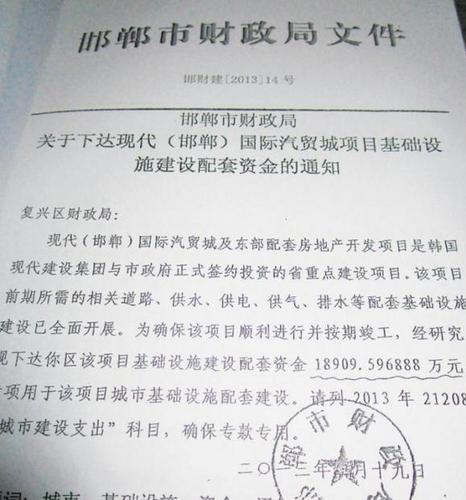 邯郸市财政局文件
邯财建[2013]14号
邯郸市财政局
关于下达现代（邯郸）国际汽贸城项目基础设
施建设配套资金的通知
复兴区财政局：
现代（邯郸）国际汽贸城及东部配套房地产开发项目是韩国
现代建设集团与市政府正式签约投资的省重点建设项目。该项目
前期所需的相关道路、供水、供电、供气、排水等配套基础设施
建设已全面开展。为确保该项目顺利进行并按期竣工，经研究
现下达你区该项目基础设施建设配套资金 18909.596888 万元
项用于该项目城市基础设施配套建设。请列2013年21208
城市建设支出”科目，确保专款专用。
邯郸市财政
二〇一三年 月十九日
词：城市 基础设施 资金